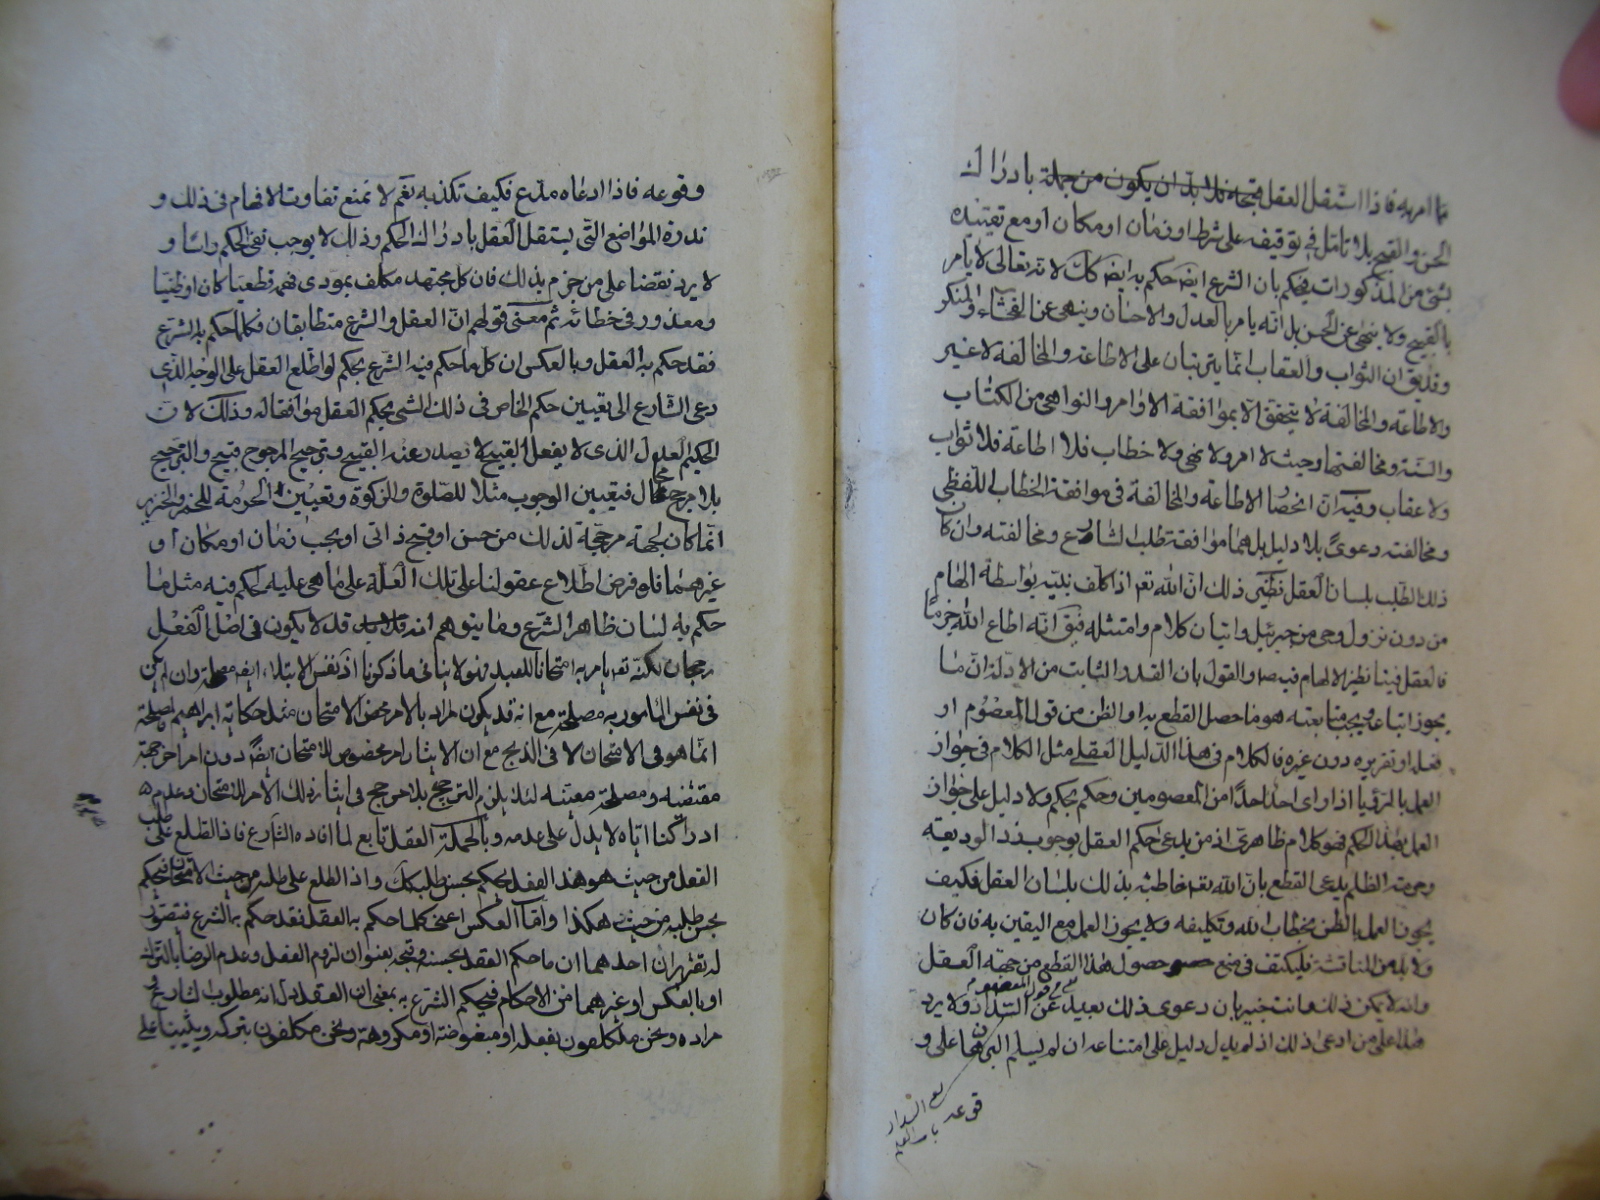 مما امر به فاذا استقل العقل بقبحه فلا بد ان يكون من جملة بادراك
الحسن والقبح بلا تامل في توقيف على شرط او زمان او مكان او مع تقييده
بشئ من المذكورات فيحكم بان الشرع ايضا حكم به ايضا كك لانه تعالى لا يامر
بالقبيح ولا ينهى عن الحسن بل انه يامر بالعدل والاحسان وينهى عن الفحشاء والمنكر
وقد يق ان الثواب والعقاب انما يترتبان على الاطاعة والمخالفة لا غير
والاطاعة والمخالفة لا يتحقق الا بموافقة الاوامر والنواهي من الكتاب
والسنة ومخالفتها وحيث لا امر ولا نهي ولا خطاب فلا اطاعة فلا ثواب
ولا عقاب وفيه ان انحصار الاطاعة والمخالفة في موافقة الخطاب اللفظي
ومخالفته دعوى بلا دليل بل هما موافقة طلب الشارع ومخالفته وان كان
ذلك الطلب بلسان العقل نظير ذلك ان الله تعه اذا كلف نبيه بواسطة الهام
من دون نزول وحي من جبرئيل واتيان كلام وامتثله فيق انه اطاع الله جزما
فالعقل فينا نظير الالهام فيه ص والقول بان القدر الثابت من الادلة ان ما
يجوز اتباعه ويجب متابعته هو ما حصل القطع به او الظن من قول المعصوم او
فعله او تقريره دون غيره فالكلام في هذا الدليل العقلي مثل الكلام في جواز
العمل بالرؤيا اذا راى احد احدا من المعصومين وحكم بحكم ولا دليل على جواز
العمل بهذا الحكم فهو كلام ظاهري اذ من يدعي حكم العقل بوجوب رد الوديعة
وحرمة الظلم يدعي القطع بان الله تعه خاطبه بذلك بلسان العقل فكيف
يجوز العمل بالظن بخطاب الله وتكليفه ولا يجوز العمل مع اليقين به فان كان
ولا بد من المناقشة فليكتف في منع حصول هذا القطع من جهة العقل
وانه لا يمكن ذلك وانت خبير بان دعوى ذلك بعيد عن السداد ولا يرد
هذا على من ادعى ذلك اذ لم يدل دليل على امتناعه ان لم يسلم البرهان على و
قوعه
وقوعه فاذا ادعاه مدع فكيف تكذبه نعم لا نمنع تفاوت الافهام في ذلك و
ندرة المواضع التي يستقل العقل بادراك الحكم وذلك لا يوجب نفي الحكم راسا و
لا يرد نقضا على من جزم بذلك فان كل مجتهد مكلف بمودى فهمه قطعيا كان او ظنيا
ومعذور في خطائه ثم معنى قولهم ان العقل والشرع متطابقان فكلما حكم به الشرع
فقد حكم به العقل وبالعكس ان كل ما حكم فيه الشرع بحكم لو اطلع العقل على الوجه الذي
دعى الشارع الى تعيين حكم الخاص في ذلك الشئ يحكم العقل موافقا له وذلك لان
الحكيم العدل الذي لا يفعل القبيح لا يصدر عنه القبيح وترجيح المرجوح قبيح والترجيح
بلا مرجح محال فتعيين الوجوب مثلا للصلوة والزكوة وتعيين الحرمة للخمر والخنزير
انما كان لجهة مرجحة لذلك من حسن او قبح ذاتي او بحسب زمان او مكان او
غيرهما فلو فرض اطلاع عقولنا على تلك العلة على ما هي عليه لحكم فيه مثل ما
حكم به لسان ظاهر الشرع وما يتوهم انه قد لا يكون في اصل الفعل
رجحان لكنه تعه يامر به امتحانا للعبد فهو لا ينافي ما ذكرنا اذ نفس الابتلاء ايضا مصلحة وان لم يكن
في نفس المامور به مصلحة مع انه قد يكون المراد بالامر محض الامتحان مثل حكاية ابراهيم فالمصلحة
انما هو في الامتحان لا في الذبح مع ان الايثار امر مخصوص للامتحان ايضا دون امر اخر جهة
مقتضيه ومصلحة معتبة لئلا يلزم الترجيح بلا مرجح في ايثار ذلك الامر للامتحان وعدم
ادراكنا اياه لا يدل على عدمه وبالجملة العقل تابع لما افاده الشارع فاذا اطلع على طلب
الفعل من حيث هو هذا الفعل يحكم بحسن طلبه كك واذا اطلع على طلبه من حيث الامتحان فيحكم
بحسن طلبه من حيث هكذا واما العكس اعني كلما حكم به العقل فقد حكم به الشرع فتصور
له تقريران احدهما ان ما حكم العقل بحسنه وقبحه بعنوان لزوم الفعل وعدم الرضا بالترك
او بالعكس او غيرهما من الاحكام فيحكم الشرع به بمعنى ان العقل دل انه مطلوب الشارع و
مراده ونحن مكلفون بفعله او مبغوضه او مكروهه ونحن مكلفون بتركه ويثيبنا على